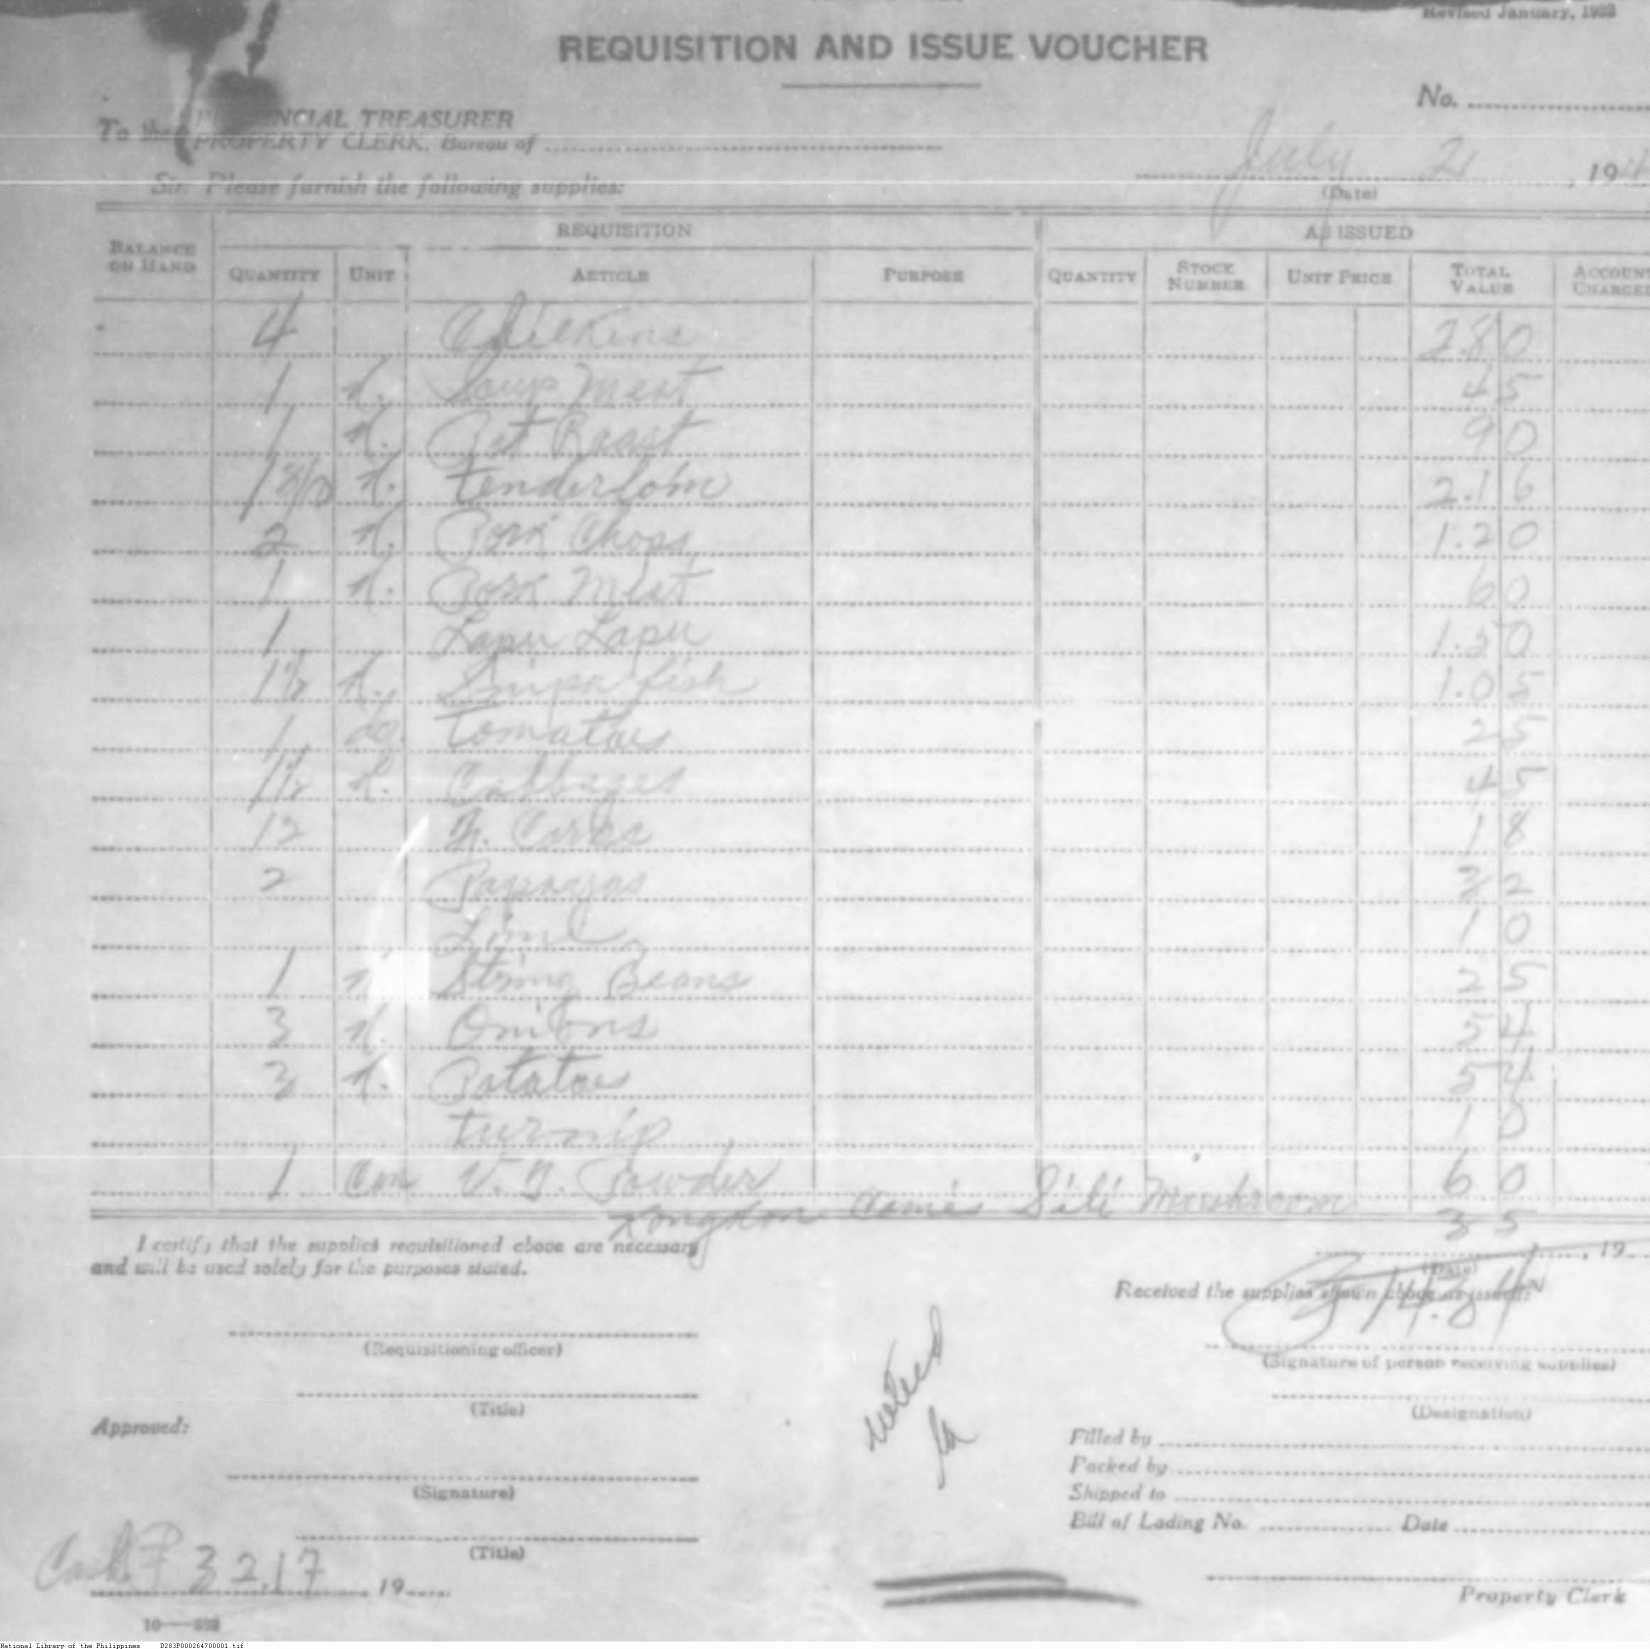 Revised January, 1933
REQUISITION AND ISSUE VOUCHER
No.
To the PROVINCIAL TREASURER
PROPERTY CLERK, Bureau of
July 21, 194
(Date)
Sir: Please furnish the following supplies:
REQUISITION AS ISSUED
BALANCE ON HAND QUANTITY UNIT ARTICLE PURPOSE QUANTITY STOCK NUMBER UNIT PRICE TOTAL VALUE ACCOUNT CHARGED
4 Chickens 2.80
1 k. Soup Meat 45
1 k. Pot Roast 90
k. Tenderloin 2.16
2 k. Pork Chops 1.20
1 k. Pork Meat 60
1 Lapu Lapu 1.50
1 1/2 k. fish 1.05
1 do. Tomatoes 25
1 1/2 k. Cabbages 45
12 18
2 Papayas 32
Lime 10
1 k. String Beans 25
3 k. Onions 54
3 k. Potatoes 54
turnip 10
1 Can Powder 60
Kongkon Camias Sili Mushroom 35
I certify that the supplies requisitioned above are necessary
and will be used solely for the purposes stated.
, 19
(Date)
Received the supplies shown above as issued:
14.34
(Requisitioning officer)
(Signature of person receiving supplies)
(Title)
(Designation)
Approved:
Filled by
Packed by
(Signature)
Shipped to
Bill of Lading No. Date
(Title)
Cash ₱ 32.17
, 19
Property Clerk
National Library of the Philippines D283P000264700001.tif